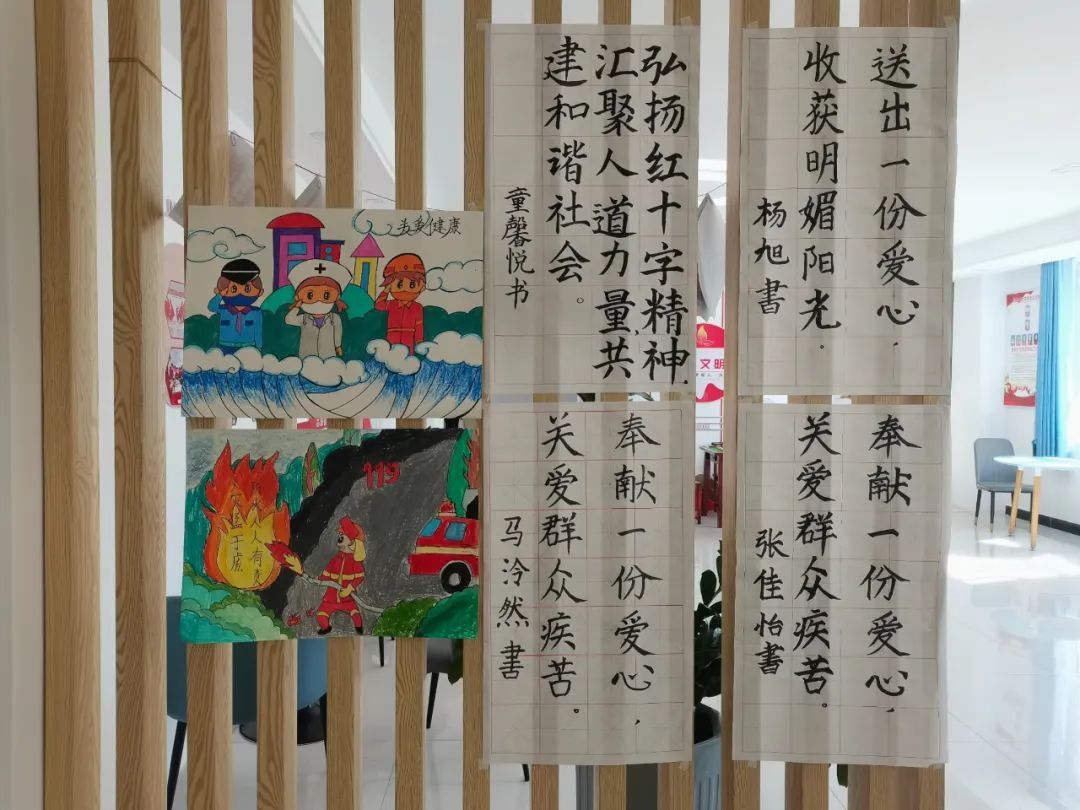 弘扬红十字精神，
汇聚人道力量，共
建和谐社会。
童馨悦书
送出一份爱心，
收获明媚阳光.
杨旭書
奉献一份爱心，
关爱群众疾苦。
马泠然書
奉献一份爱心，
关爱群众疾苦。
张佳怡書
健康
119
人人有责
文明